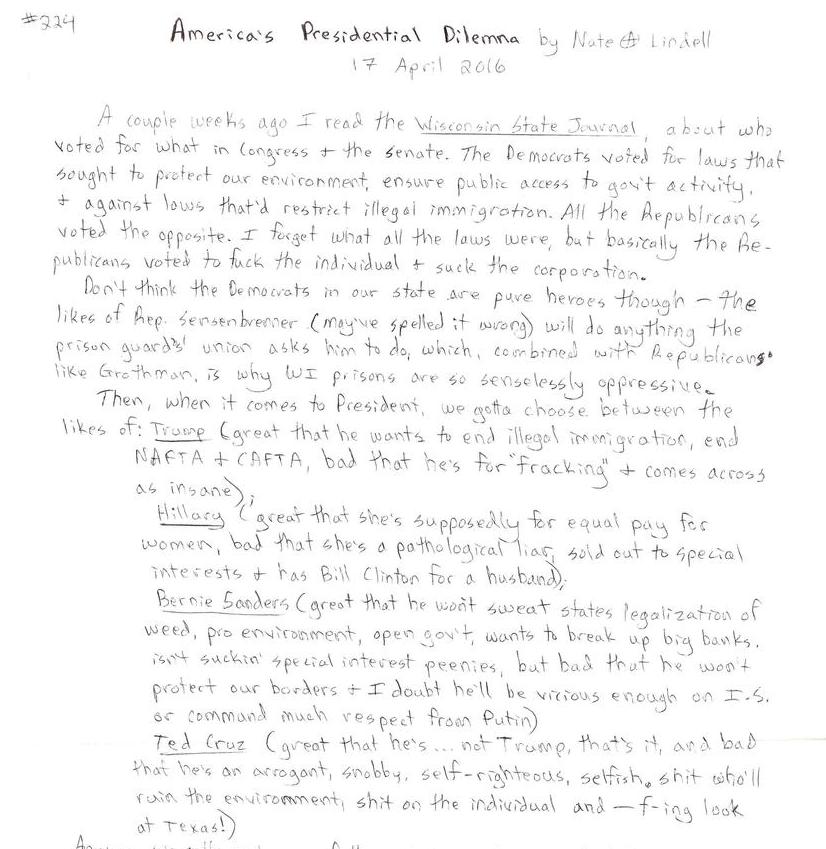 #224
America's Presidential Dilemna by Nate A Lindell
17 April 2016
A couple weeks ago I read the Wisconsin State Journal, about who
voted for what in Congress + the senate. The Democrats voted for laws that
sought to protect our environment, ensure public access to gov't activity,
+ against laws that'd restrict illegal immigration. All the Republicans
voted the opposite. I forget what all the laws were, but basically the Re-
publicans voted to fuck the individual + suck the corporation.
Don't think the Democrats in our state are pure heroes though – the
likes of Rep. Sensenbrenner (may've spelled it wrong) will do anything the
prison guards' union asks him to do, which, combined with Republicans
like Grothman, is why WI prisons are so senselessly oppressive.
Then, when it comes to President, we gotta choose between the
likes of: Trump (great that he wants to end illegal immigration, end
NAFTA + CAFTA, bad that he's for "fracking" + comes across
as insane);
Hillary (great that she's supposedly for equal pay for
women, bad that she's a pathological liar, sold out to special
interests + has Bill Clinton for a husband);
Bernie Sanders (great that he won't sweat states legalization of
weed, pro environment, open gov't, wants to break up big banks,
isn't suckin' special interest peenies, but bad that he won't
protect our borders + I doubt he'll be vicious enough on I.S.
or command much respect from Putin)
Ted Cruz (great that he's... not Trump, that's it, and bad
that he's an arrogant, snobby, self-righteous, selfish, shit who'll
ruin the environment, shit on the individual and – f-ing look
at Texas!)